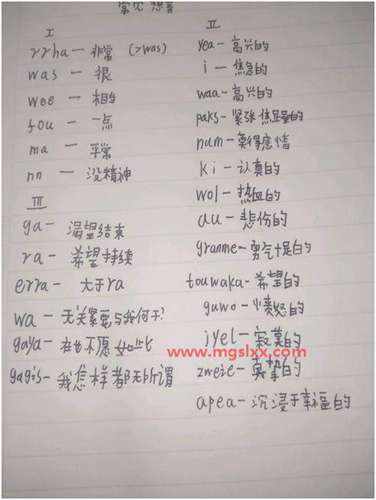 常见
I
rrha — 非常 (>was)
was — 很
wee — 相当
fou — 一点
ma — 平常
nn — 没精神
III
ga — 渴望结束
ra — 希望持续
erra — 大于ra
wa — 无关紧要与我何干?
gaya — 在也不愿如此
gagis — 我怎样都无所谓
II
yea — 高兴的
i — 焦急的
waa — 高兴的
paks — 紧张
num — 莫得感情
ki — 认真的
wol — 热血的
au — 悲伤的
granme — 勇气十足的
touwaka — 希望的
guwo — 愤怒的
jyel — 寂寞的
www.mgslxx.com
zweie — 真挚的
apea — 沉浸于幸福的